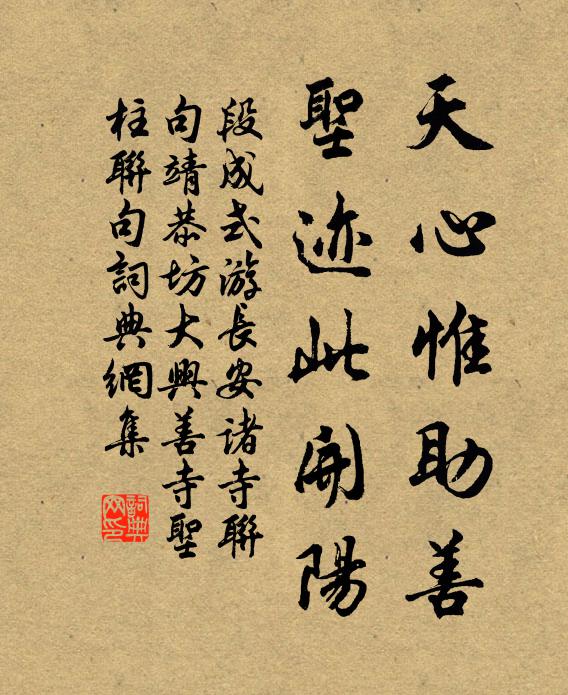 天心惟助善
聖迹此開陽
段成式游長安诸寺聯
句靖恭坊大興善寺聖
柱聯句詞典網集
詞典网印